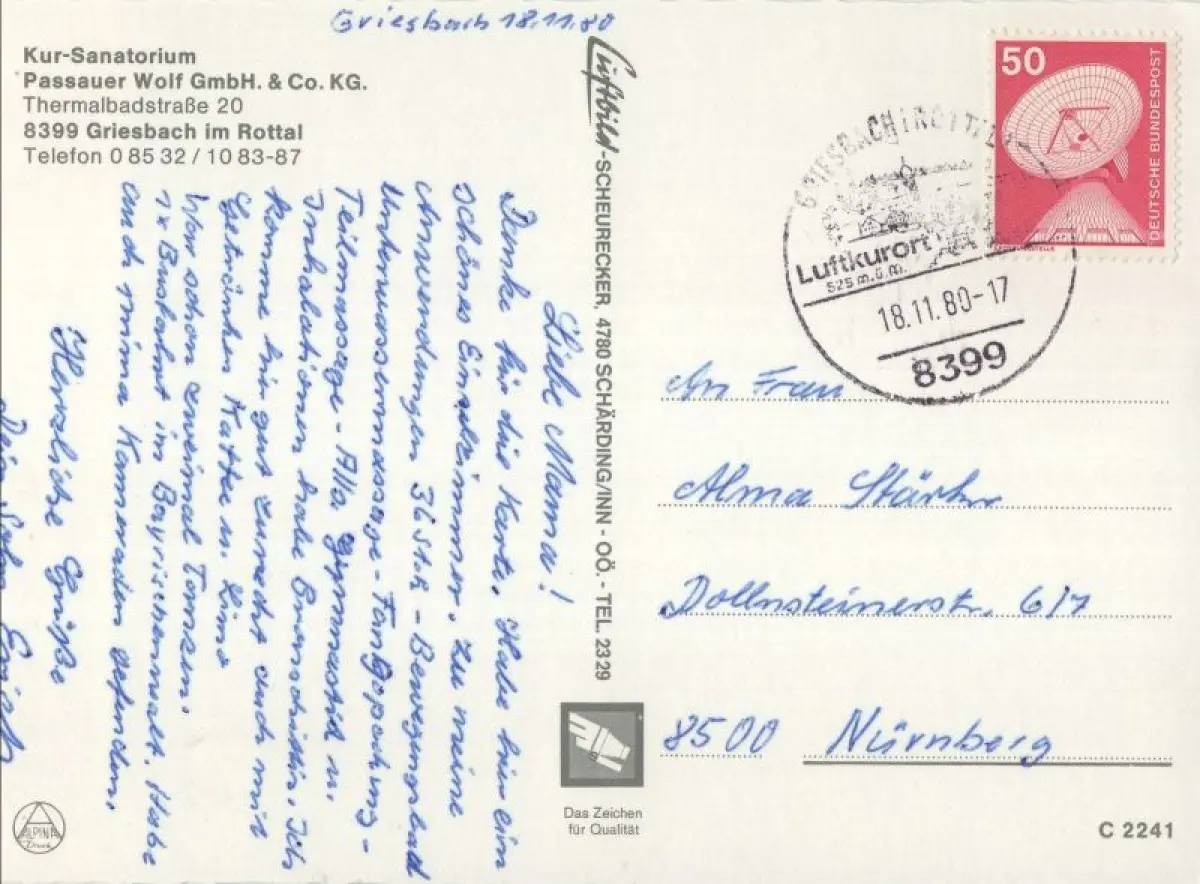 Griesbach 18.11.80
Kur-Sanatorium
Passauer Wolf GmbH. & Co. KG.
Thermalbadstraße 20
8399 Griesbach im Rottal
Telefon 0 85 32 / 10 83-87
Liebe Mama!
Danke für die Karte. Habe hier ein
schönes Einzelzimmer. Zu meine
Anwendungen 36 stck - Bewegungsbad
Unterwassermassage - Fangopackung -
Teilmassage - Allg Gymnastik u.
Inhalationen habe Brandrillin. Ich
komme hir gut zurecht auch mit
Getränken Kaffee u. Limo
War schon zweimal Tanzen.
1x Busfahrt im Bayrischenwalt. Habe
auch prima Kameraden gefunden.
Herzliche Grüße
Dein Sohn Erich
Luftbild-SCHEURECKER, 4780 SCHÄRDING/INN - OÖ. - TEL. 23 29
Das Zeichen
für Qualität
ALPINA
Druck
50
DEUTSCHE BUNDESPOST
GRIESBACH I ROTTAL
Luftkurort
525 m.ü.m.
18.11.80-17
8399
An Frau
Alma Stärker
Dollnsteinerstr. 617
8500 Nürnberg
C 2241